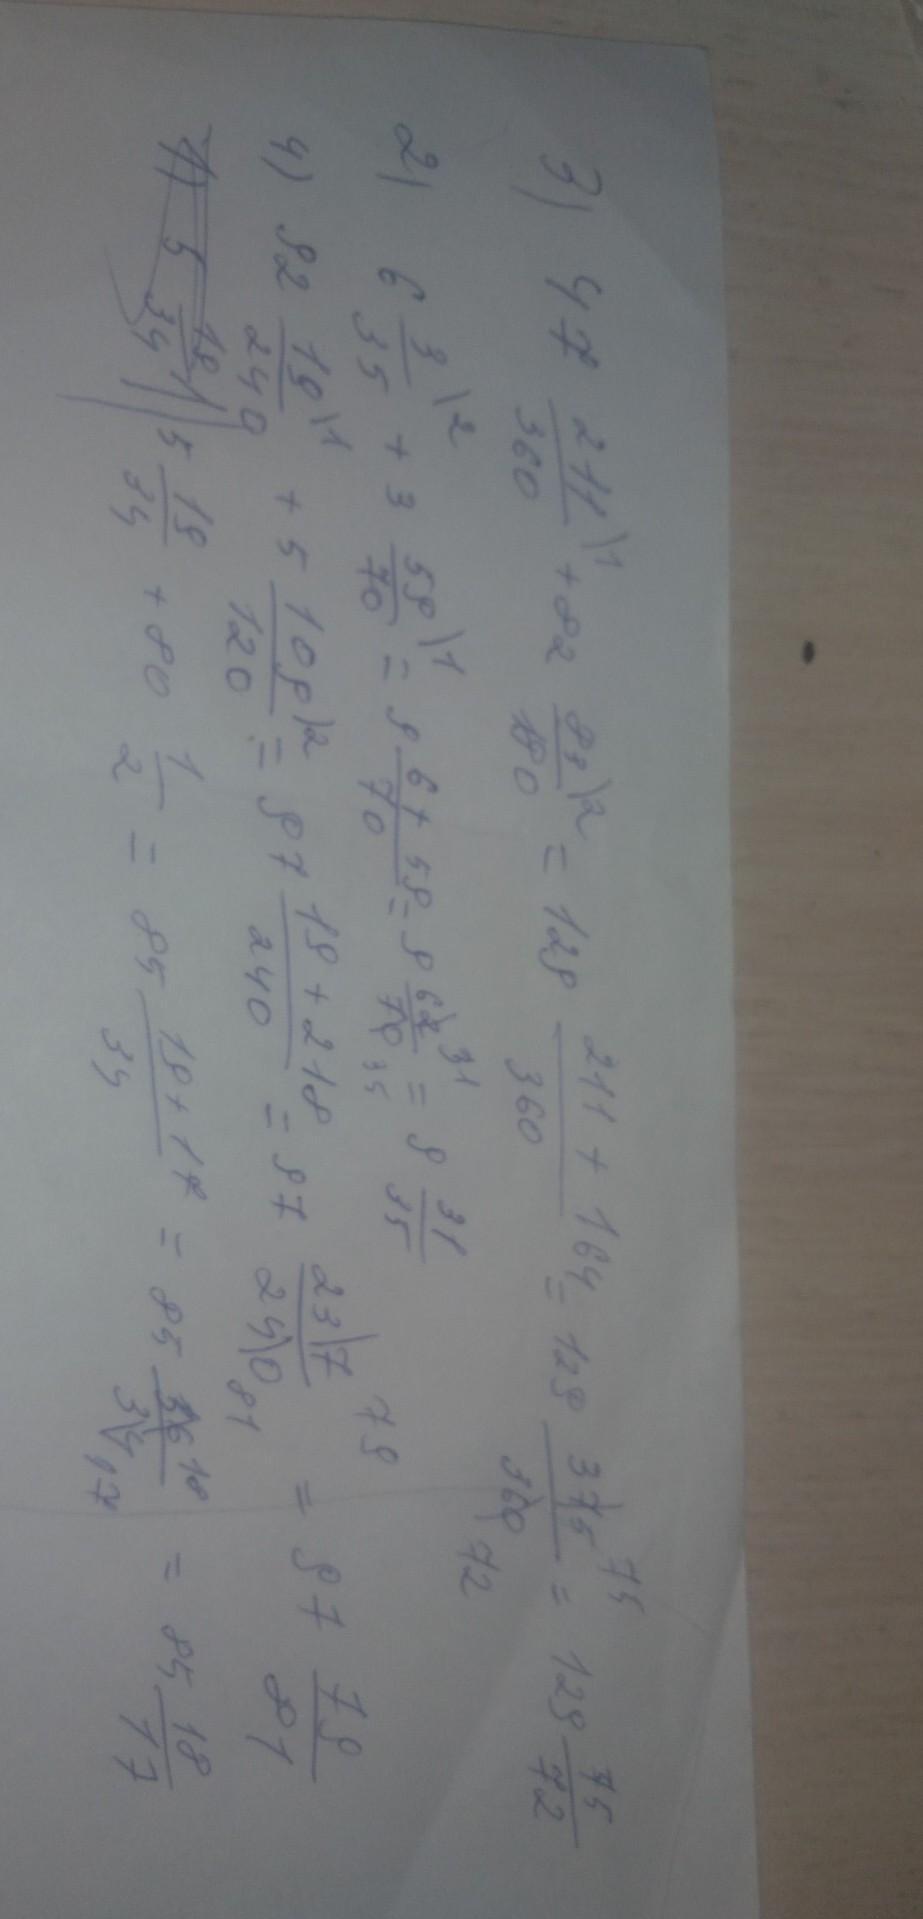 3) 47 211/360 \1 + 82 82/180 \2 = 129 (211 + 164)/360 = 129 375/360 75 72 = 129 75/72
2) 6 3/35 \2 + 3 59/70 \1 = 9 (6 + 59)/70 = 9 62/70 31 35 = 9 31/35
4) 92 19/240 \1 + 5 109/120 \2 = 97 (19 + 218)/240 = 97 237/240 79 81 = 97 79/81
1) 5 19/34 5 19/34 + 80 1/2 = 85 (19 + 17)/34 = 85 36/34 18 17 = 85 18/17